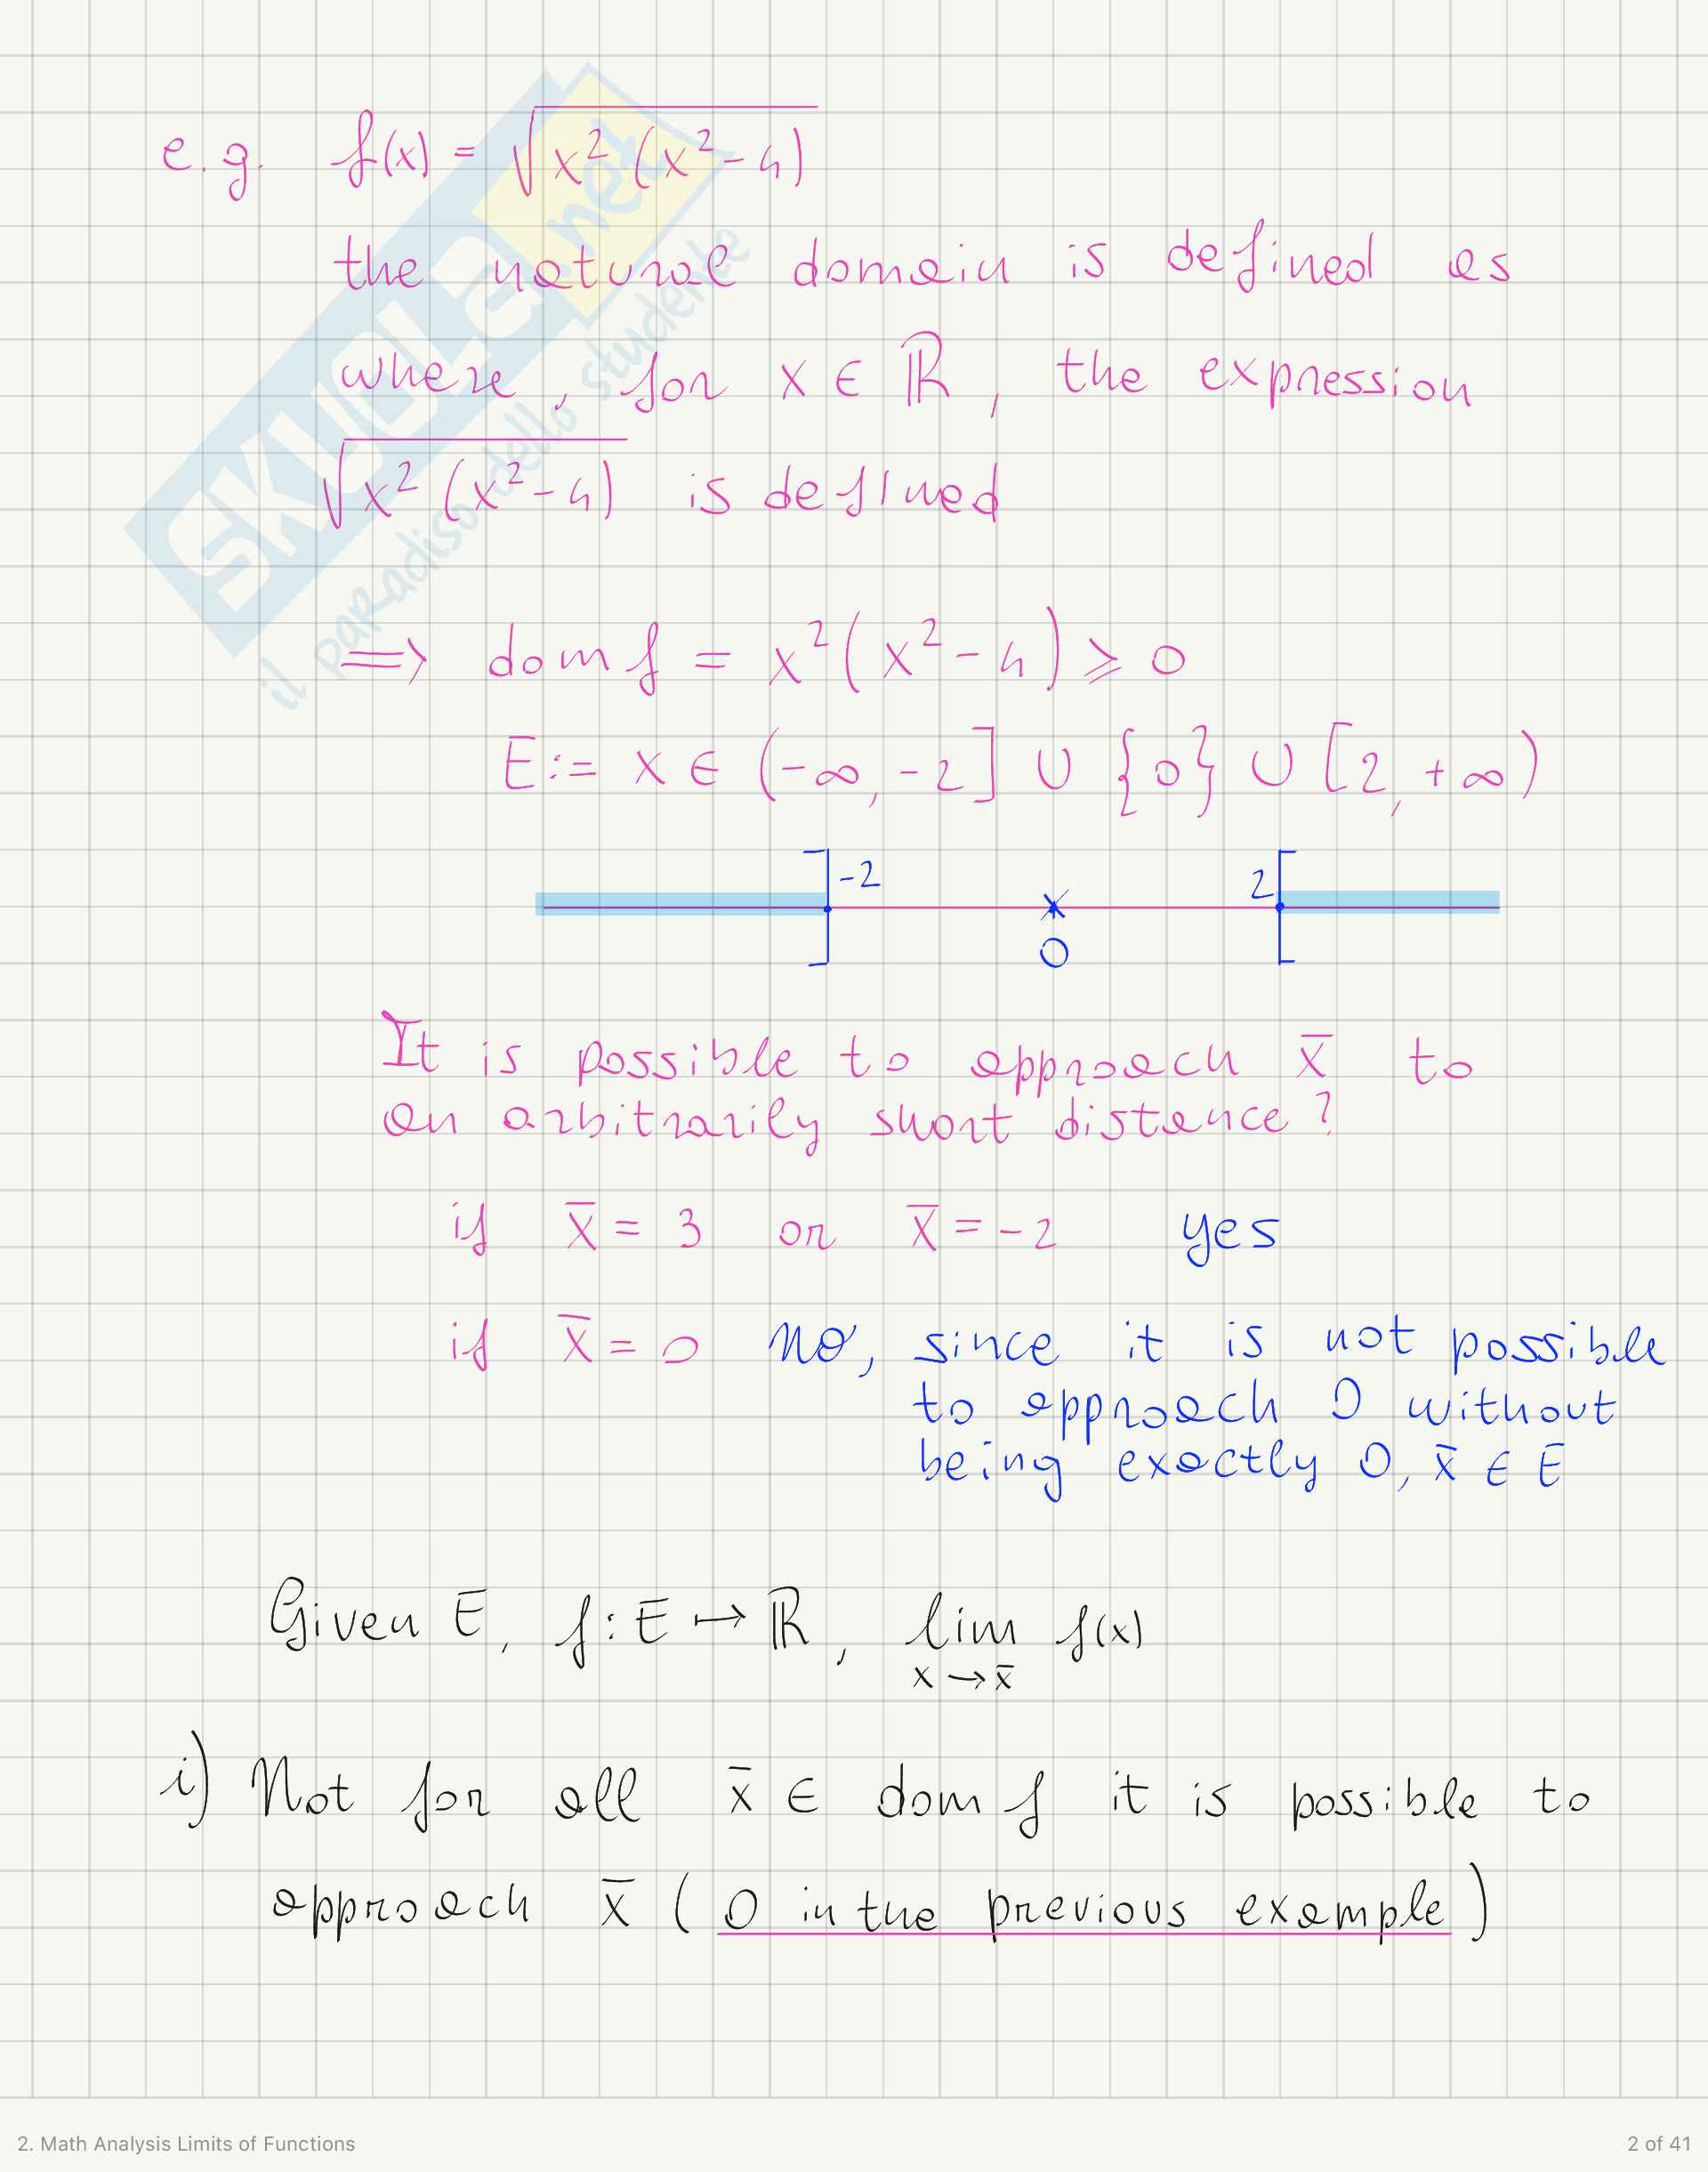 e.g. f(x) = √x² (x²-4)
the natural domain is defined as
where, for x ∈ ℝ, the expression
√x² (x²-4) is defined
⟹ dom f = x²(x²-4) ⩾ 0
E := x ∈ (-∞, -2] ∪ {0} ∪ [2, +∞)
] -2 2 [
0
It is possible to approach x̄ to
an arbitrarily short distance?
if x̄ = 3 or x̄ = -2 yes
if x̄ = 0 no, since it is not possible
to approach 0 without
being exactly 0, x̄ ∈ E
Given E, f: E ↦ ℝ, lim f(x)
x → x̄
i) Not for all x̄ ∈ dom f it is possible to
approach x̄ (0 in the previous example)
SKUOLA.net
il paradiso dello studente
2. Math Analysis Limits of Functions
2 of 41